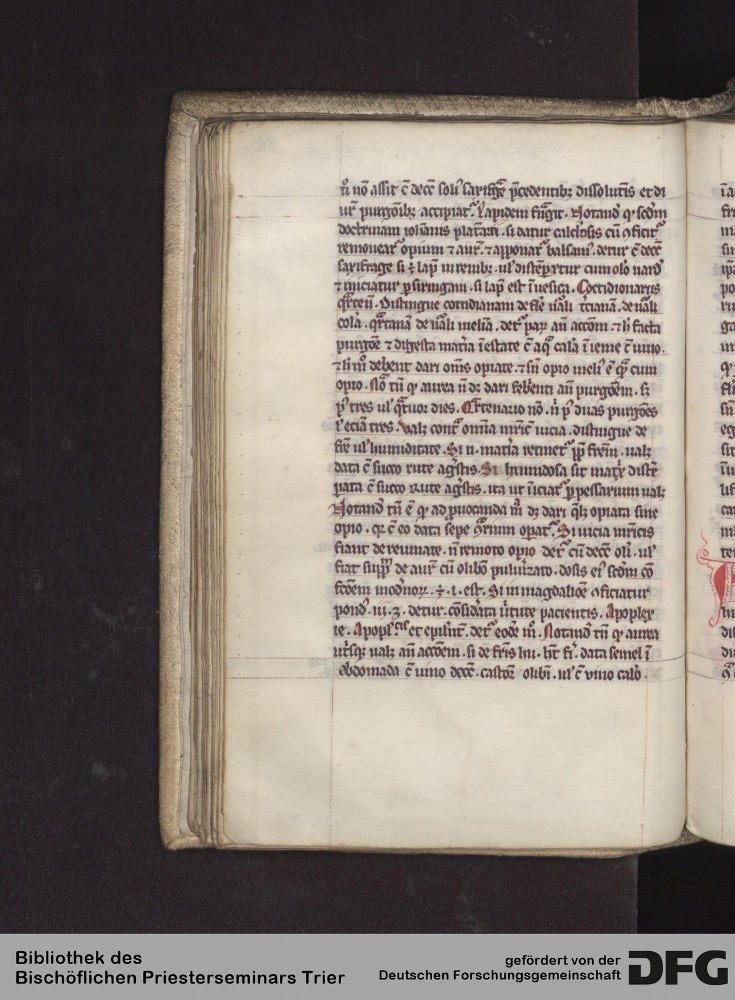 ñ nō assit c̄ decc̄ soli saxifᵃge p̄cedentibꝫ dissolutīs et di
ur̄ purgōibꝫ accipiat᷑. Lapidem frāgit. Notand̄ qͥ scd̄m
doctrinam iohannis platearii. si datur calculosis cū ꝯficit᷑
remoueat᷑ opium ⁊ aur̄. ⁊ apponat᷑ balsam᷑. detur c̄ decc̄
saxifrage si ÷ lap̄ in renibꝫ. ul᷑ distēp̄etur cum olō nard᷑
⁊ iniciatur ꝑ siringam. si lap̄ est ī uesica. Cotidionariis
qᵃrteñ. Distingue cotidianam de fle nāli t̄cianā. de nāli
cola. qᵃrtanā de nāli melīa. det᷑ paꝝ añ accōm ⁊ h̄ facta
purgōe ⁊ digesta mat̄ia ī estate c̄ aqᵃ calā ī ieme c̄ uino.
⁊ h̄ m̊ debent dari om̄s opiate. ⁊ sñ opio meli᷑ ē qᵃ cum
opio. Nō tñ qͥ aurea ñ dꝫ dari febͥenti añ purgōem. sꝫ
p᷑ tres ul᷑ qᵃtuor dies. Qᵃrtenario nō. ñ p᷑ duas purgōes
ł eciā tres. Valꝫ contᵃ omīa mᵃric̄ uicia. distingue de
frē ul᷑ humiditate. Si ñ. mat̄ia retinet᷑ ꝓp̄ frēm. ualꝫ
data c̄ succo rute agͥstis. Si humidosa sit mat̄x distē
pata c̄ succo Rute agͥstis. ita ut īiciat᷑ ꝑ pessarium ualꝫ
Notand̄ tñ ē qͥ ad ꝓuocanda m̄ dꝫ dari qͣlꝫ opiata sine
opio. qꝛ c̄ eo data sepe ꝯᵃrium opat᷑. Si uicia mᵃricis
fiant de reumate. ñ remoto opio det᷑ cū decc̄ oli. ul᷑
fiat supp̄ de aur̄ cū olibō puluͥzato. dosis ei᷑ scd̄m cō
fcōem modͥnoꝝ. ÷. i. est. Si in magdaliōe ꝯficiatur
pond᷑. iii. ʒ. detur. cōsidͥata uͥtute pacientis. Apoplex
ie. Apopl᷑.cis et epiln̄t. det᷑ eodē m̊. Notand̄ tñ qͥ aurea
ut̄sqꝫ ualꝫ añ accōem. si de frīs hu. hn̄t fi᷑. data semel ī
ebdomada c̄ uino decc̄. castor̄ olibī. ul᷑ c̄ uino calō.
Bibliothek des
Bischöflichen Priesterseminars Trier
gefördert von der
Deutschen Forschungsgemeinschaft
DFG